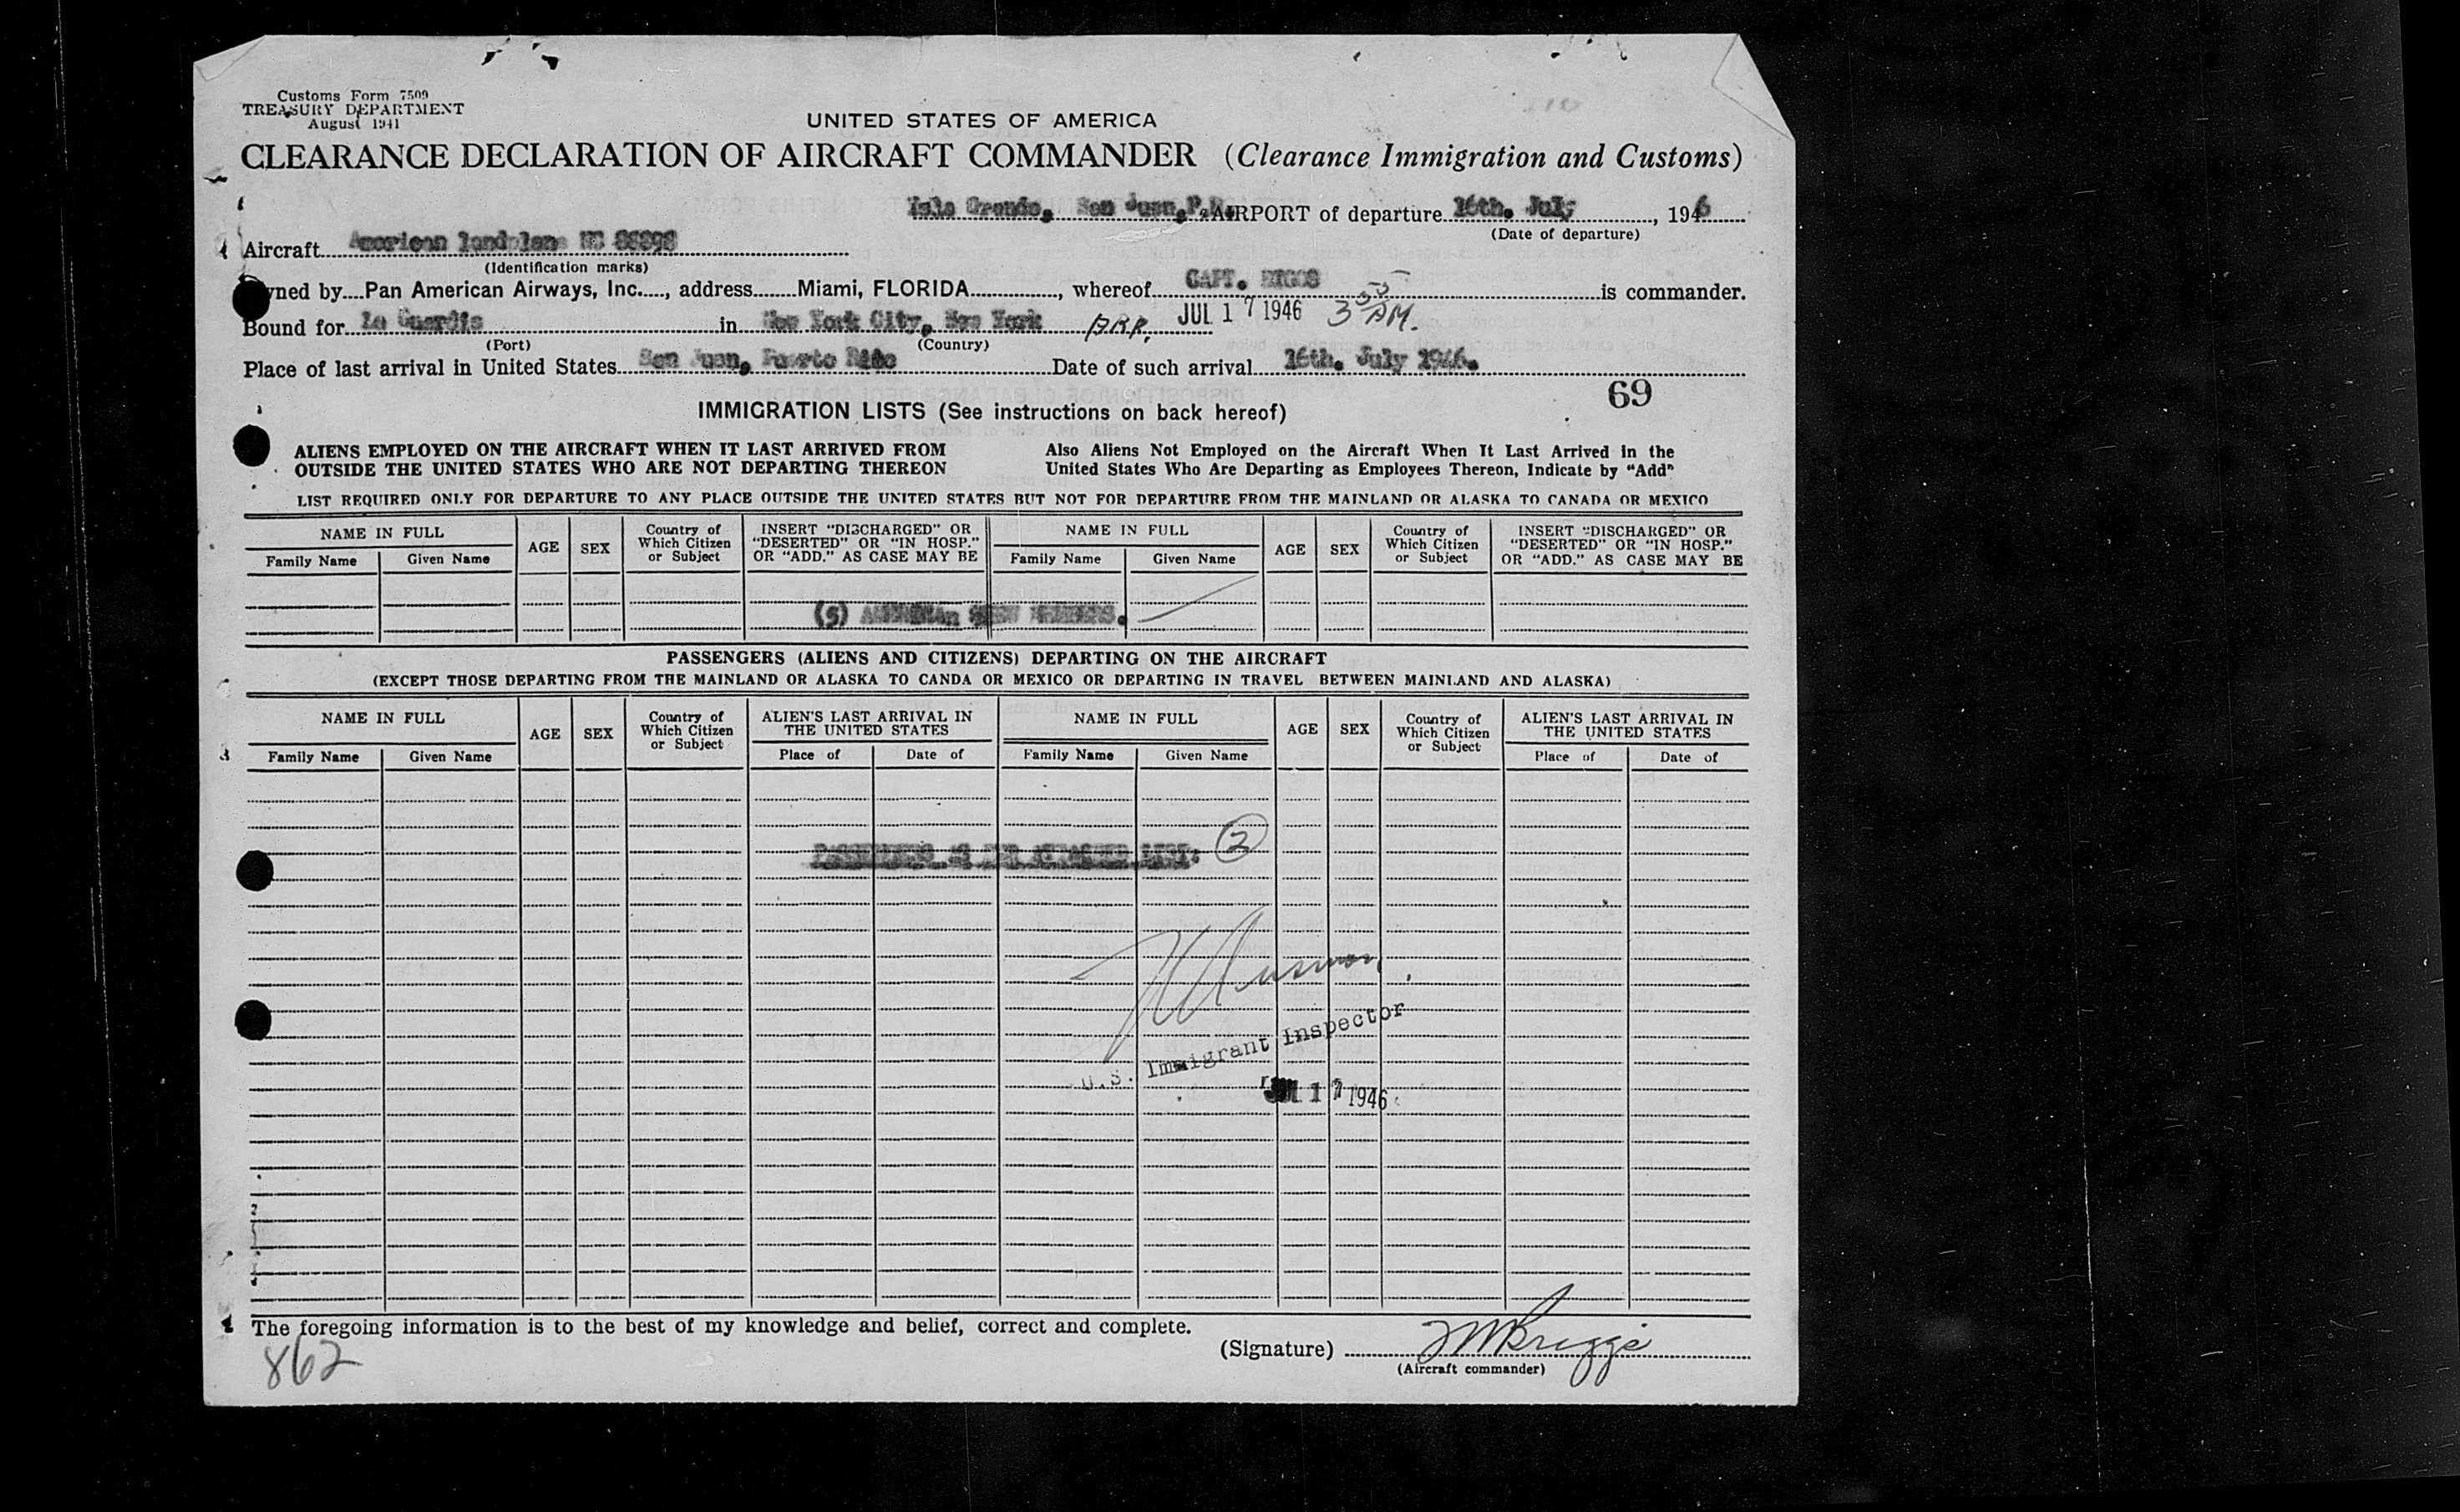 Customs Form 7509
TREASURY DEPARTMENT
August 1941
UNITED STATES OF AMERICA
CLEARANCE DECLARATION OF AIRCRAFT COMMANDER (Clearance Immigration and Customs)
Isla Grande, San Juan, P.R. AIRPORT of departure 16th. July, 1946
(Date of departure)
Aircraft American landplane NC
(Identification marks)
Owned by Pan American Airways, Inc., address Miami, FLORIDA, whereof CAPT. is commander.
Bound for La Guardia in New York City, New York ARR. JUL 17 1946 3 55 AM.
(Port) (Country)
Place of last arrival in United States San Juan, Puerto Rico Date of such arrival 16th. July 1946.
69
IMMIGRATION LISTS (See instructions on back hereof)
ALIENS EMPLOYED ON THE AIRCRAFT WHEN IT LAST ARRIVED FROM
OUTSIDE THE UNITED STATES WHO ARE NOT DEPARTING THEREON
Also Aliens Not Employed on the Aircraft When It Last Arrived in the
United States Who Are Departing as Employees Thereon, Indicate by “Add”
LIST REQUIRED ONLY FOR DEPARTURE TO ANY PLACE OUTSIDE THE UNITED STATES BUT NOT FOR DEPARTURE FROM THE MAINLAND OR ALASKA TO CANADA OR MEXICO
NAME IN FULL
Family Name Given Name
AGE
SEX
Country of
Which Citizen
or Subject
INSERT “DISCHARGED” OR
“DESERTED” OR “IN HOSP.”
OR “ADD.” AS CASE MAY BE
NAME IN FULL
Family Name Given Name
AGE
SEX
Country of
Which Citizen
or Subject
INSERT “DISCHARGED” OR
“DESERTED” OR “IN HOSP.”
OR “ADD.” AS CASE MAY BE
(5) AMERICAN CREW MEMBERS.
PASSENGERS (ALIENS AND CITIZENS) DEPARTING ON THE AIRCRAFT
(EXCEPT THOSE DEPARTING FROM THE MAINLAND OR ALASKA TO CANDA OR MEXICO OR DEPARTING IN TRAVEL BETWEEN MAINLAND AND ALASKA)
NAME IN FULL
Family Name Given Name
AGE
SEX
Country of
Which Citizen
or Subject
ALIEN'S LAST ARRIVAL IN
THE UNITED STATES
Place of Date of
NAME IN FULL
Family Name Given Name
AGE
SEX
Country of
Which Citizen
or Subject
ALIEN'S LAST ARRIVAL IN
THE UNITED STATES
Place of Date of
PASSENGERS AS PER ATTACHED LIST: 2
U.S. Immigrant Inspector
JUL 17 1946
The foregoing information is to the best of my knowledge and belief, correct and complete.
862
(Signature) Briggs
(Aircraft commander)